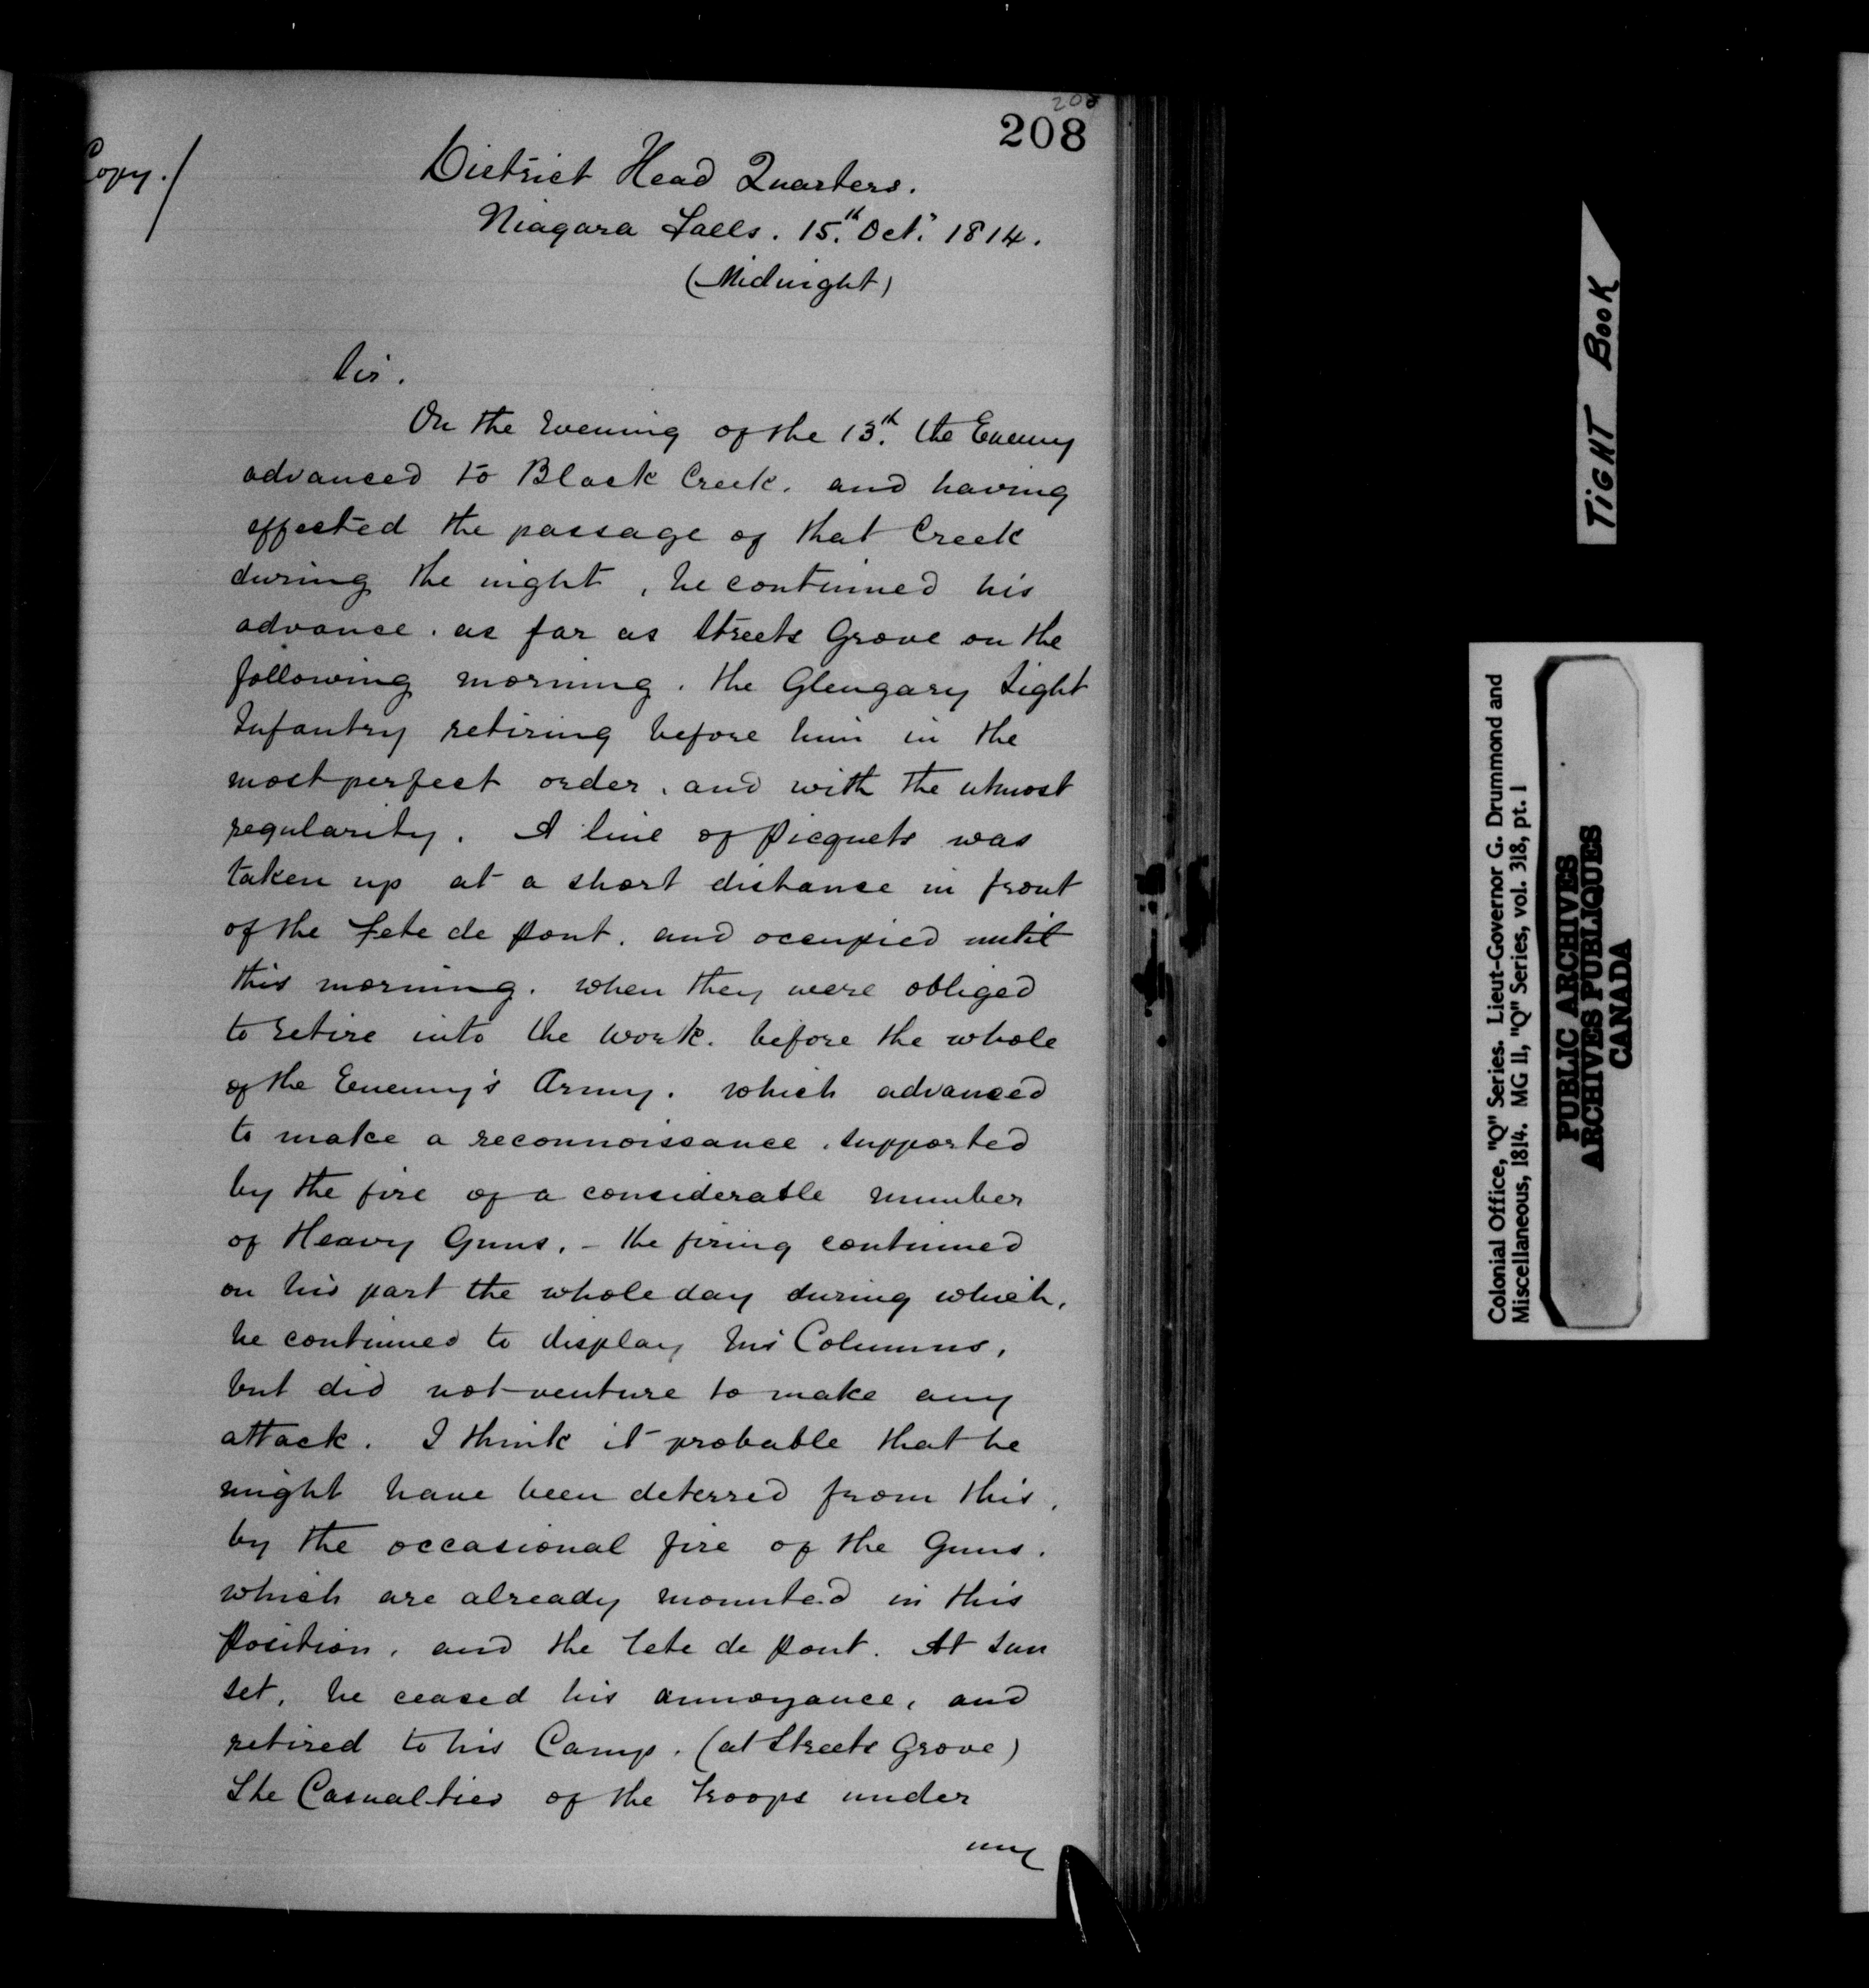 208
208
Copy./
District Head Quarters.
Niagara Falls. 15.th Oct. 1814.
(Midnight)
Sir.
On the Evening of the 13.th the Enemy
advanced to Black Creek. and having
effected the passage of that Creek
during the night, he continued his
advance. as far as Streets Grove on the
following morning. the Glengary Light
Infantry retiring before him in the
most perfect order. and with the utmost
regularity. A line of Picquets was
taken up at a short distance in front
of the Tete de Pont. and occupied until
this morning. when they were obliged
to retire into the Work. before the whole
of the Enemy's Army. which advanced
to make a reconnoissance. supported
by the fire of a considerable number
of Heavy Guns. - the firing continued
on his part the whole day during which.
he continued to display his Columns,
but did not venture to make any
attack. I think it probable that he
might have been deterred from this.
by the occasional fire of the Guns.
which are already mounted in this
Position, and the Tete de Pont. At Sun
set, he ceased his annoyance, and
retired to his Camp. (at Streets Grove)
The Casualties of the Troops under
my
TIGHT BOOK
Colonial Office, "Q" Series. Lieut-Governor G. Drummond and
Miscellaneous, 1814. MG 11, "Q" Series, vol. 318, pt. 1
PUBLIC ARCHIVES
ARCHIVES PUBLIQUES
CANADA